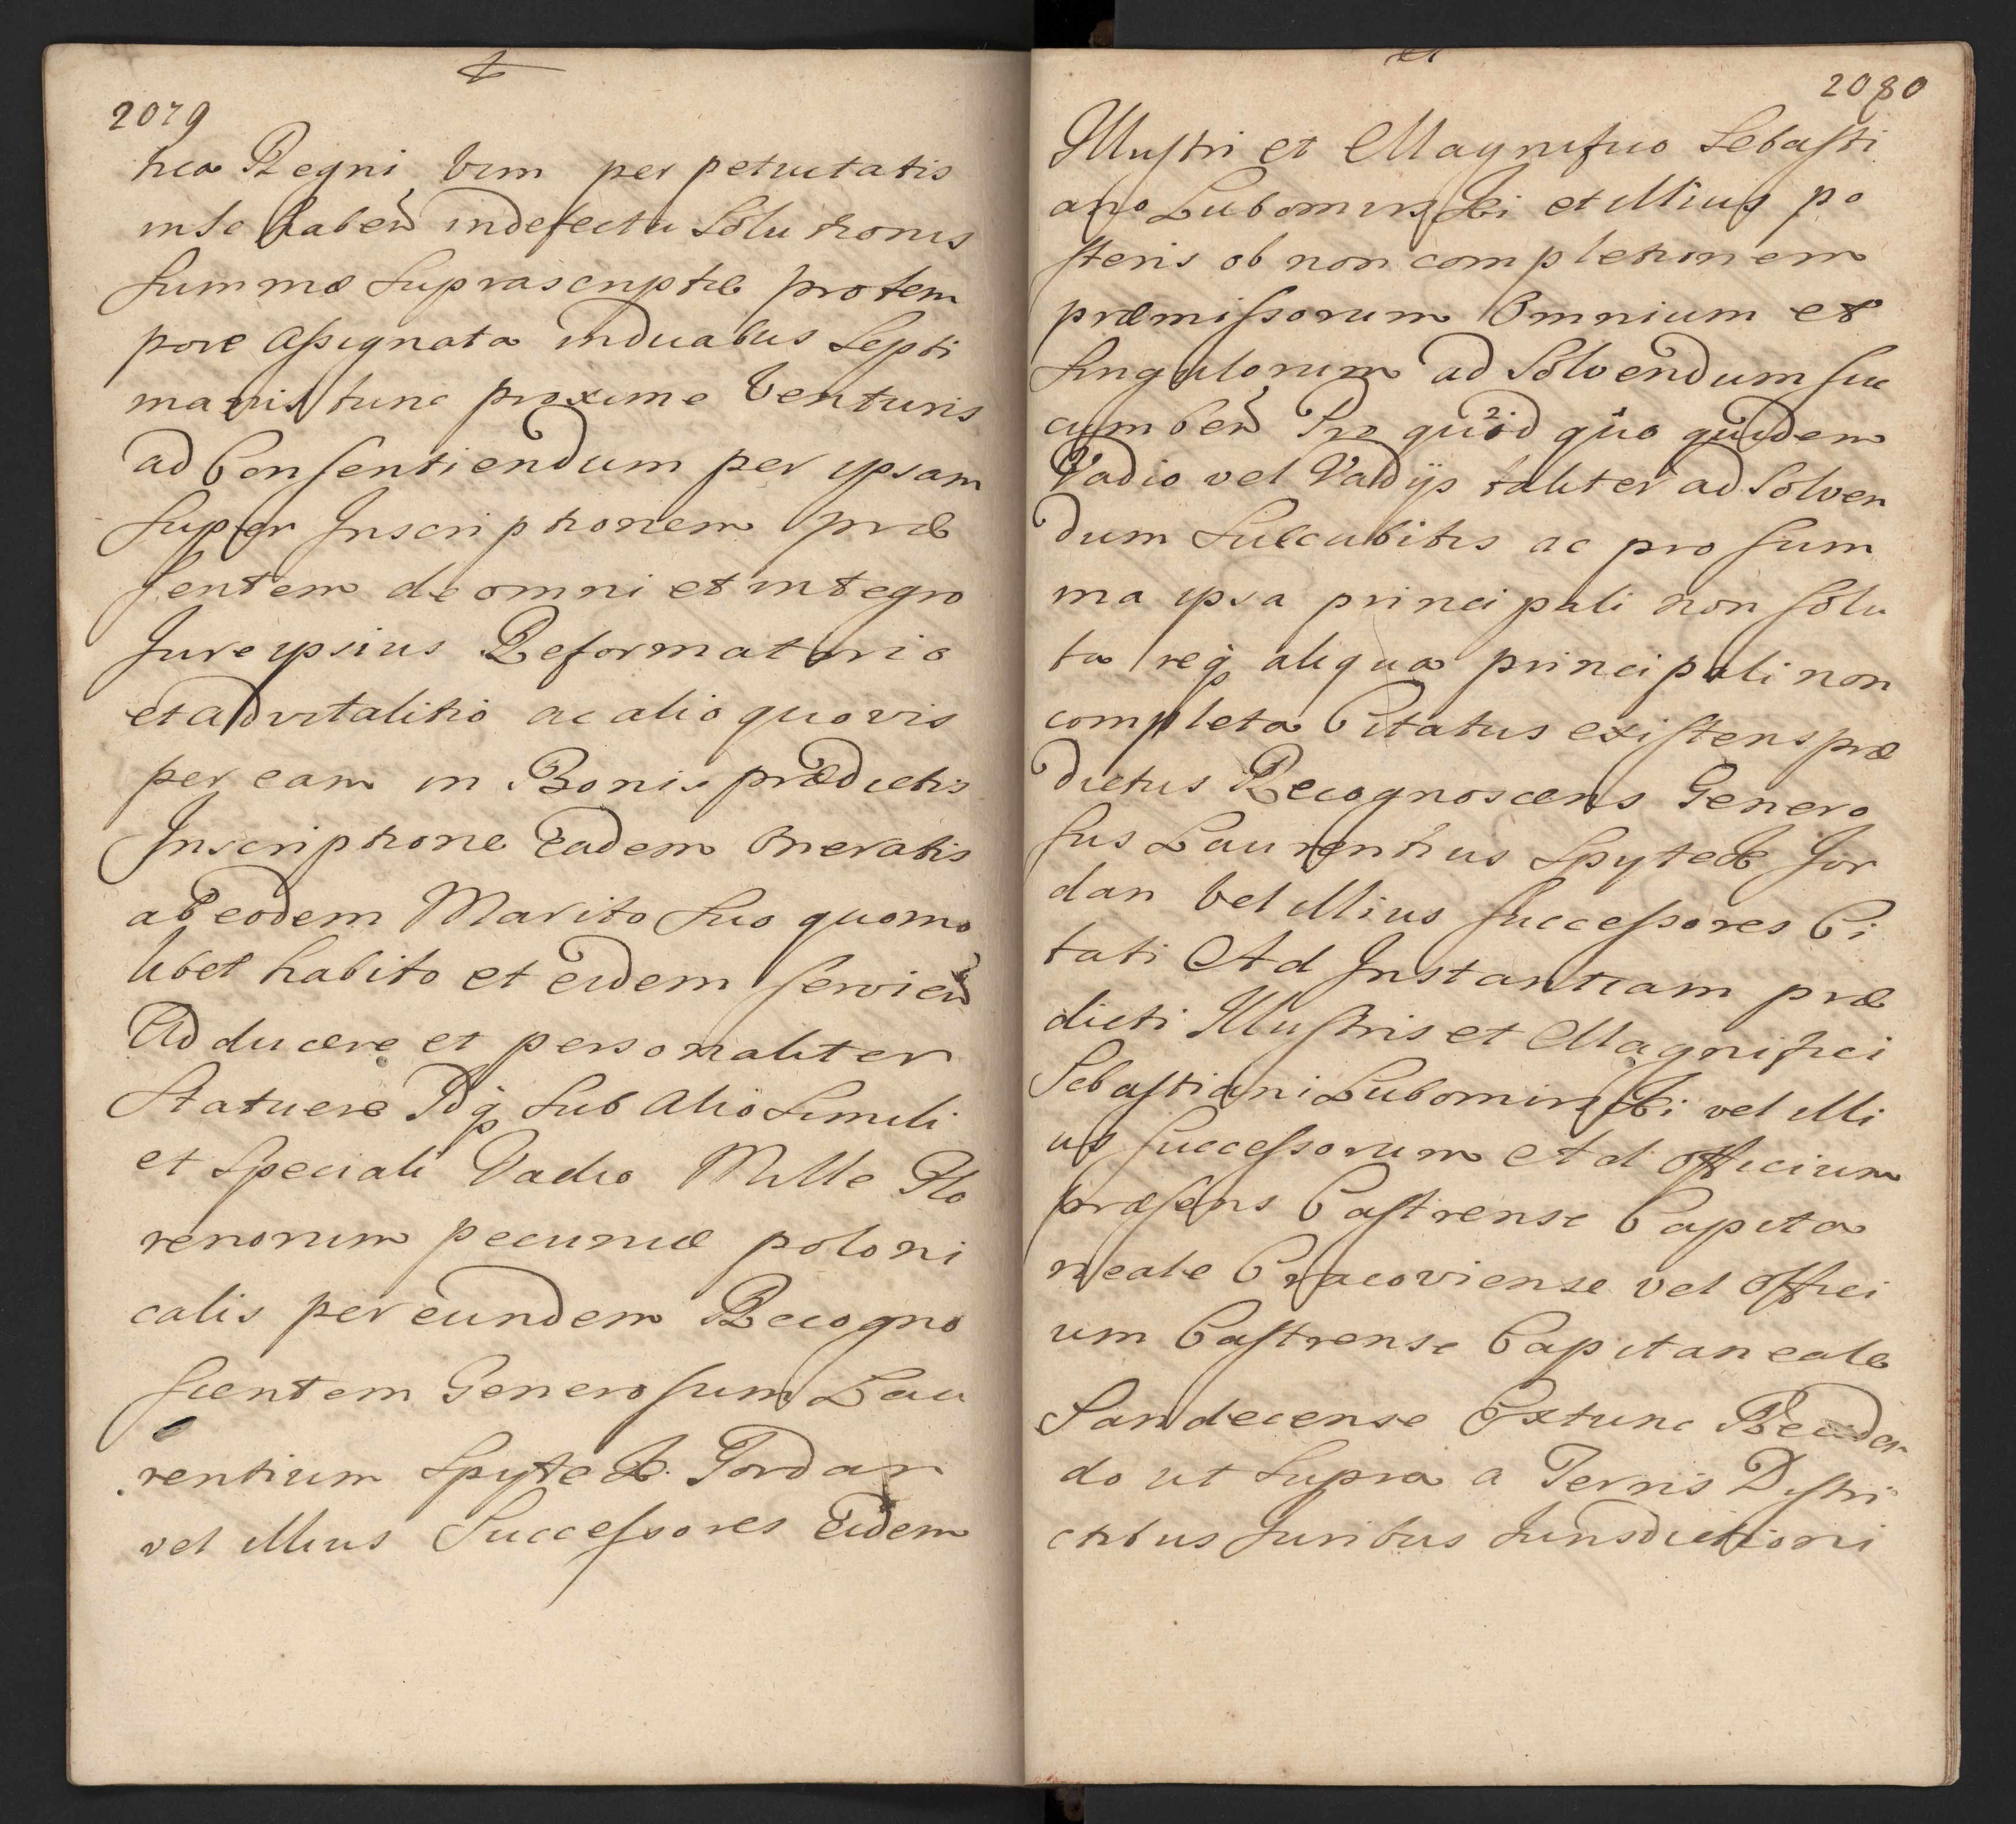 2079
tica Regni, vim perpetuitatis
in se haben̄ in defectu Solutionis
Summæ Supra scriptæ pro tem
pore assignata in duabus Septi
manis tunc proxime Venturis
ad Consentiendum per ipsam
super Inscriptionem præ
sentem de omni et integro
Jure ipsius Reformatorio
et advitalitio ac alio quovis
per eam in Bonis prædictis
Inscriptione eadem Oneratis
ab eodem Marito Suo quomo
libet habito et eidem servien̄
Adducere et personaliter
Statuere Idq̃ Sub Alio Simili
et Speciali Vadio Mille Flo
renorum pecuniæ poloni
calis per eundem Recogno
scentem Generosum Lau
rentium Spytek Jordan
vel illius Successores Eidem
2080
Illustri et Magnifico Sebasti
ano Lubomirski et illius po
steris ob non completionem
præmissorum Omnium et
Singulorum ad Solvendum suc
cumben̄ Pro quod quo quidem
Vadio vel Vadijs taliter ad Solven
dum Succubitis ac pro sum
ma ipsa principali non solu
ta req̃ aliqua principali non
completa Citatus existens præ
dictus Recognoscens Genero
sus Laurentius Spytek Jor
dan vel illius successores Ci
tati Ad Instantiam præ
dicti Illustris et Magnifici
Sebastiani Lubomirski vel illi
us successorum Ad officium
præsens Castrense Capita
neale Cracoviense vel Offici
um Castrense Capitaneale
Sandecense Extunc Receden
do ut Supra a Terris Distri
ctibus Juribus Jurisdictioni